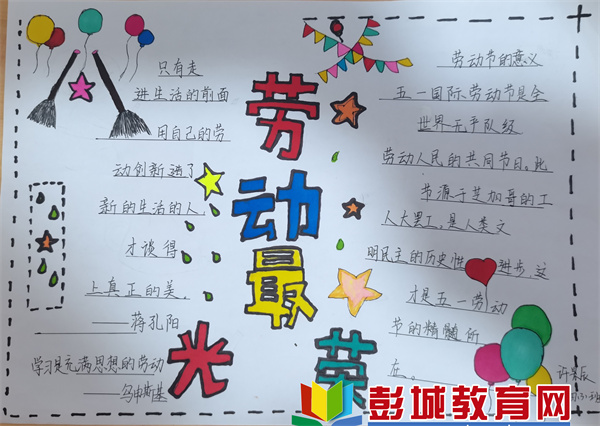 只有走
进生活的前面
用自己的劳
动创新进了
新的生活的人,
才谈得
上真正的美。
——蒋孔阳
学习是充满思想的劳动
——乌申斯基
劳动最光荣
劳动节的意义
五一国际劳动节是全
世界无产队级
劳动人民的共同节日。此
节源于芝加哥的工
人大罢工。是人类文
明民主的历史性进步,这
才是五一劳动
节的精髓所
在。
彭城教育网